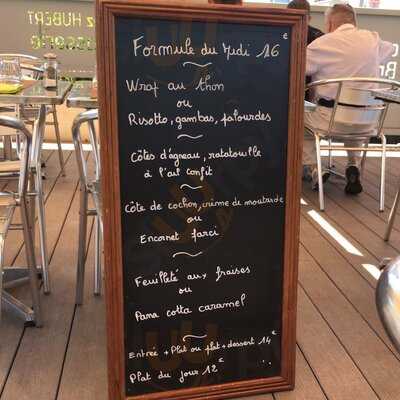 z HUBERT
Formule du Midi 16€
Wrap au thon
ou
Risotto, gambas, palourdes
Côtes d'agneau, ratatouille
à l'ail confit
Côte de cochon, crème de moutarde
ou
Encornet farci
Feuilleté aux fraises
ou
Pana cotta caramel
Entrée + Plat ou plat + dessert 14€
Plat du jour 12€